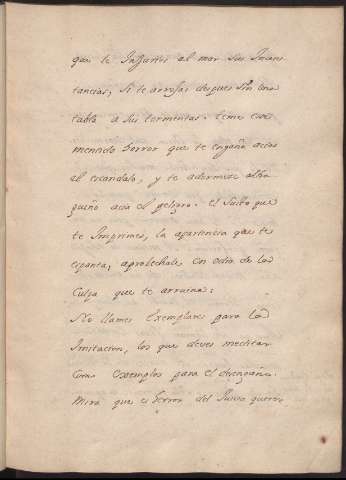 que te Influttu al mar sus Incons
tancias; Si te arrojas despues Sin una
tabla a sus tormentas. temes ese
mentido horror que te engaña acia
el escandalo, y te adormece alha
gueño acia el peligro. El Susto que
te Imprimes, la apariencia que te
espanta, aprobechale en odio de la
Culpa que te arruina:
No llames Exemplares para la
Imitacion, los que deves meditar
Como exemplos para el desengaño.
Mira que es horror del Juicio querer